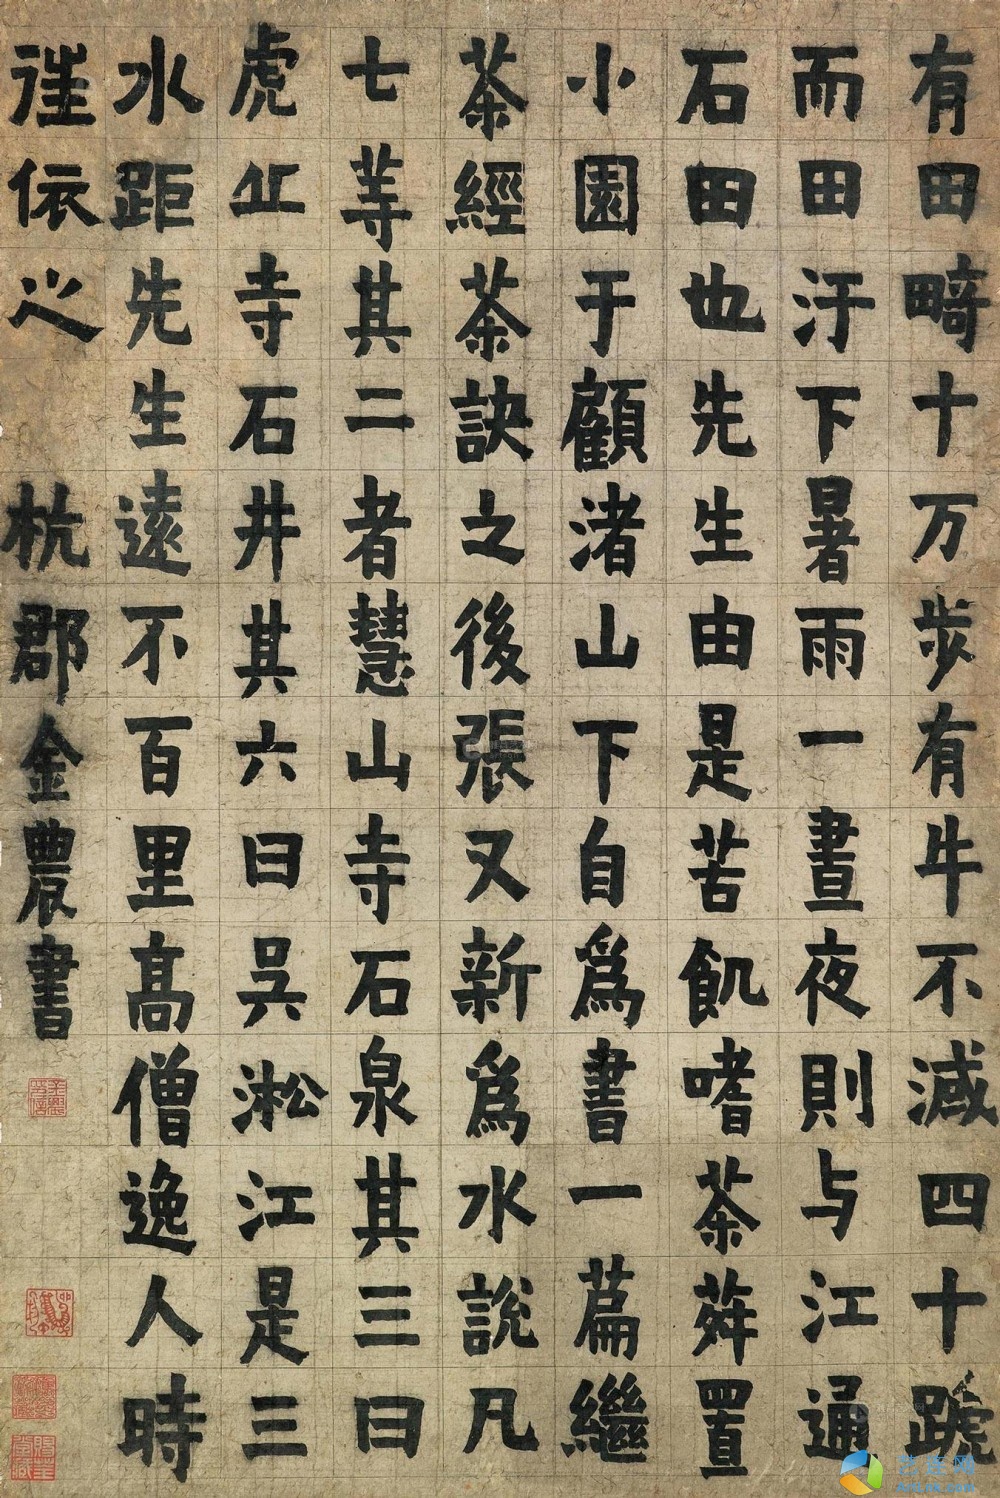 有田畸十万步有牛不減四十蹏
而田汙下暑雨一晝夜則与江通
石田也先生由是苦飢嗜茶荈置
小園于顧渚山下自為書一篇繼
茶經茶訣之後張又新為水說凡
七等其二者慧山寺石泉其三曰
虎丘寺石井其六曰吳淞江是三
水距先生遠不百里高僧逸人時
往依之 杭郡金農書